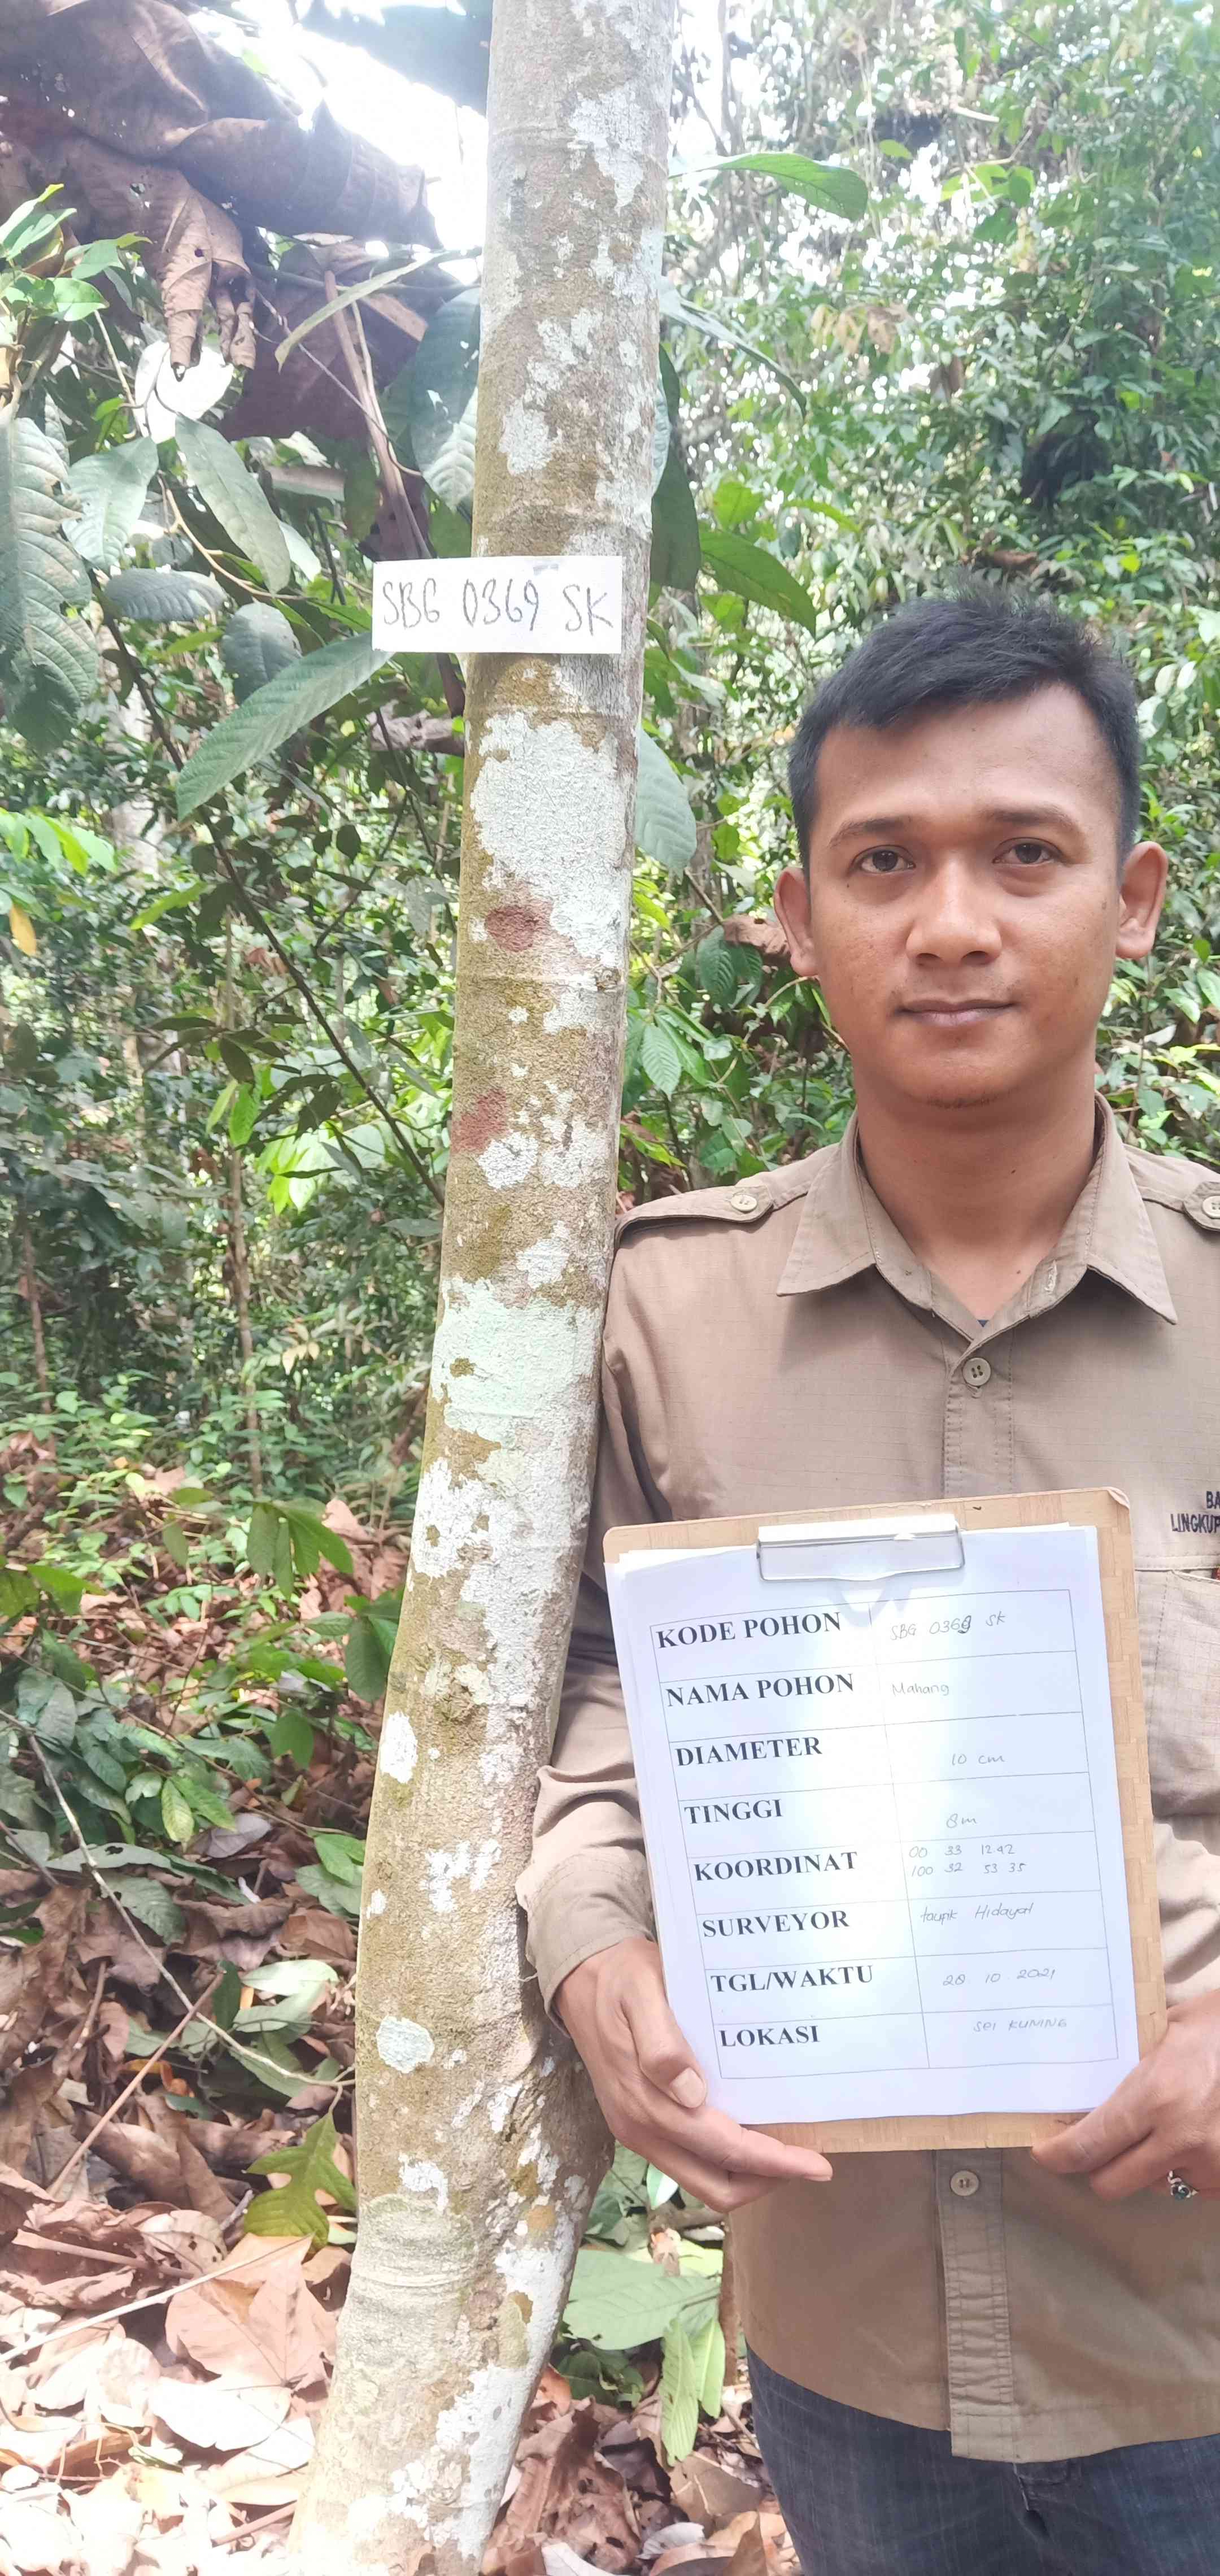 SBG 0369 SK
BA
LINGKUP
KODE POHON SBG 0369 SK
NAMA POHON Mahang
DIAMETER 10 cm
TINGGI 8m
KOORDINAT 00 33 12.42
100 32 53 35
SURVEYOR taupik Hidayat
TGL/WAKTU 28 10 2021
LOKASI Sei KUNING